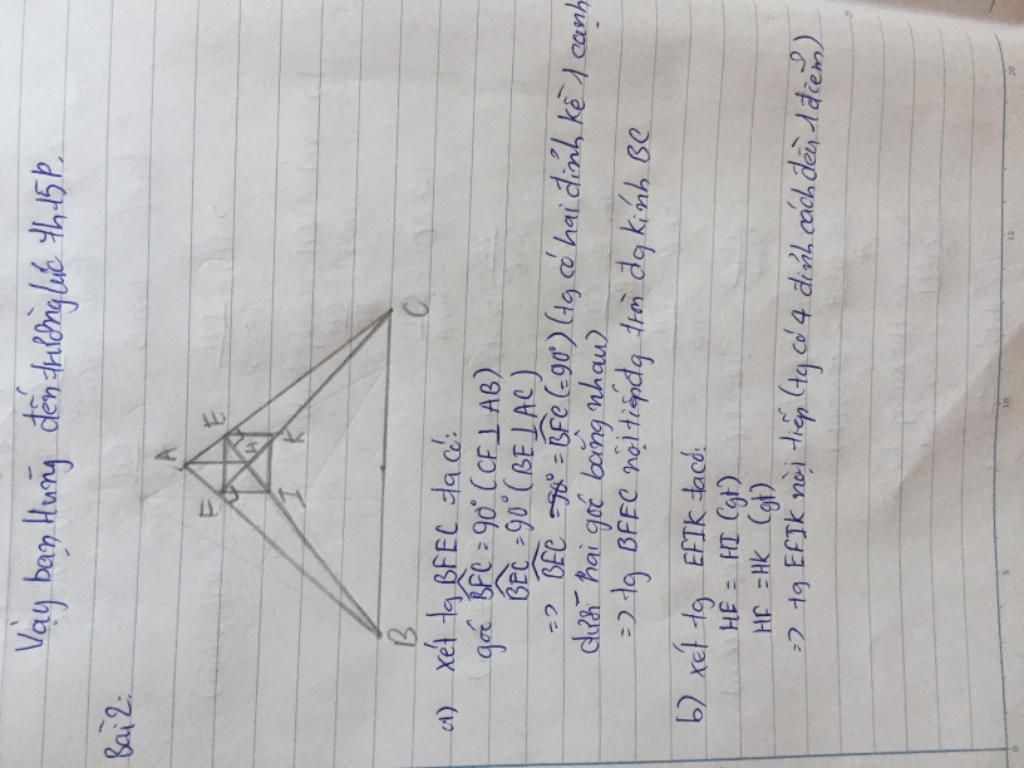 Vậy bạn Hưng đến trường lúc 7h15p.
Bài 2:
A
F
E
H
I
K
B
C
a) xét tg BFEC ta có:
góc BFC = 90° (CF ⊥ AB)
BEC = 90° (BE ⊥ AC)
=> BEC = BFC (=90°) (tg có hai đỉnh kề 1 cạnh
dưới hai góc bằng nhau)
=> tg BFEC nội tiếp đg tròn đg kính BC
b) xét tg EFIK ta có:
HE = HI (gt)
HF = HK (gt)
=> tg EFIK nội tiếp (tg có 4 đỉnh cách đều 1 điểm)